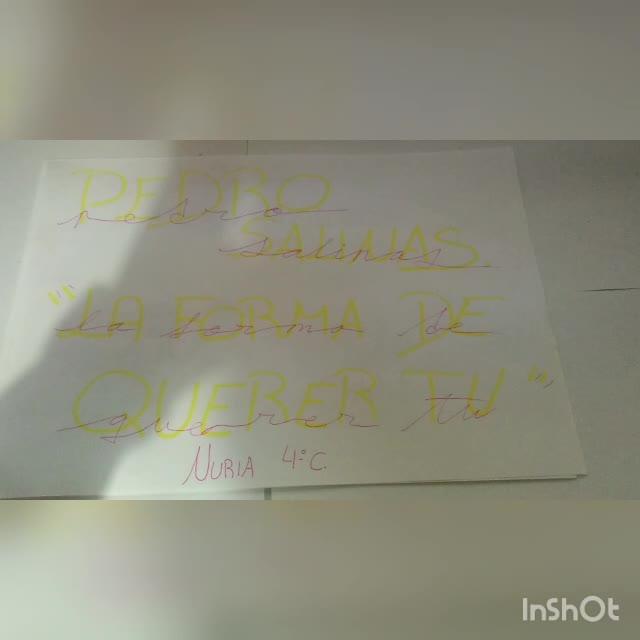 PEDRO
pedro
SALINAS
salinas
"LA FORMA DE
la forma de
QUERER TU"
querer tu
NURIA 4ºC.
InShOt